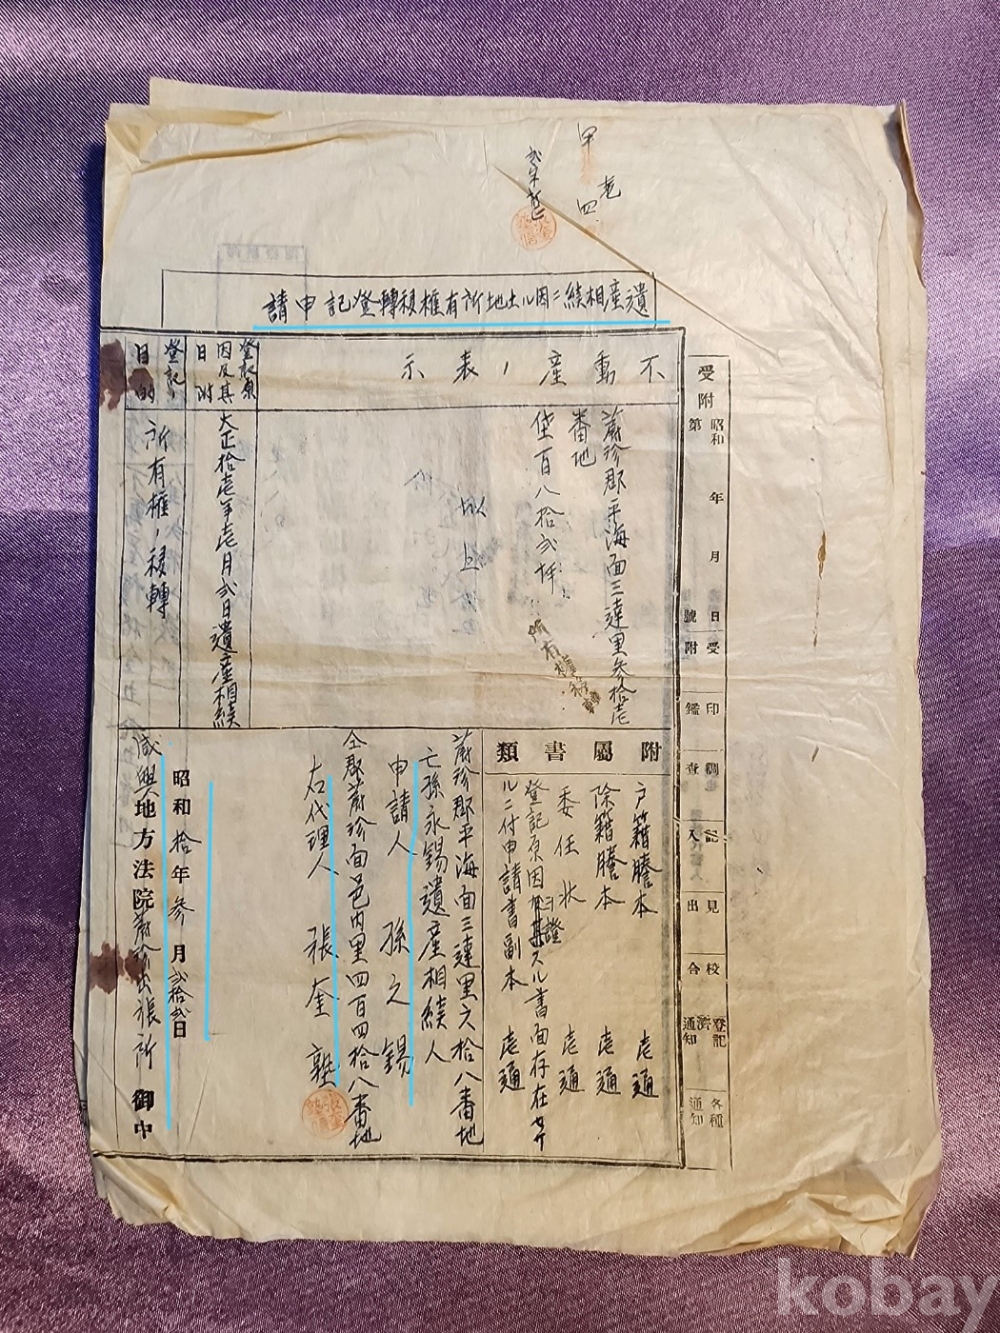 甲
壱
四
遺産相続ニ因ル土地所有権移轉登記申請
受附
昭和 年 月 日
第 號
受附
印鑑
調査
記入
見出
校合
登記済通知
各種通知
不動産ノ表示
蔚珍郡平海面三達里参拾壱
番地
垈百八拾弐坪
所有権移轉
登記原因及其日附
大正拾壱年壱月弐日遺産相続
登記ノ目的
所有権ノ移轉
附屬書類
戸籍謄本 壱通
除籍謄本 壱通
委任状 壱通
登記原因ヲ証スル書面存在セザ
ルニ付申請書副本 壱通
蔚珍郡平海面三達里六拾八番地
亡孫永錫遺産相続人
申請人 孫之錫
仝郡蔚珍面邑内里四百四拾八番地
右代理人 張奎
昭和拾年参月弐拾弐日
咸興地方法院蔚珍出張所 御中
kobay